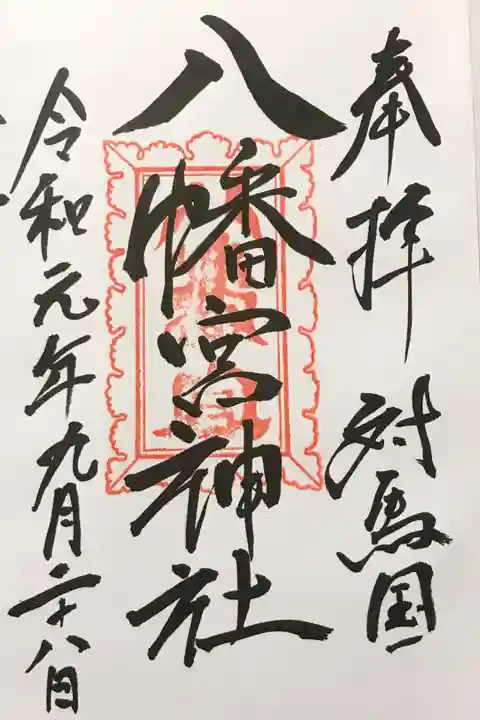 奉拝 対馬国
八幡宮神社
令和元年九月二十八日